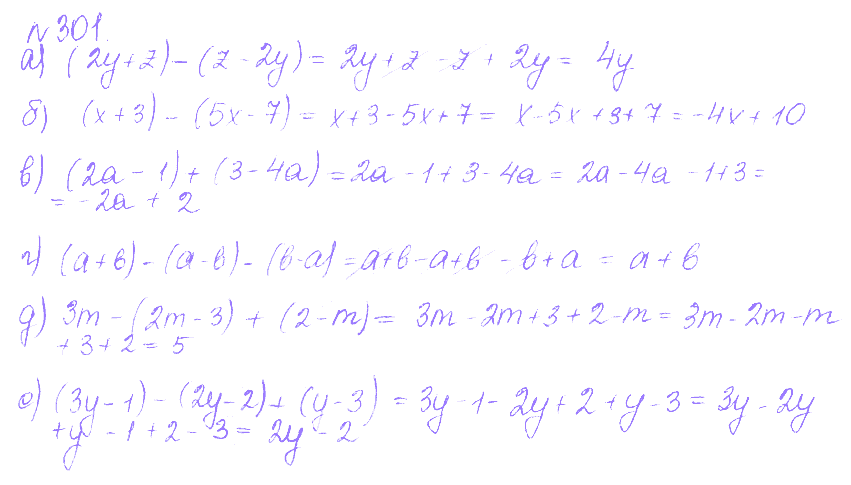 № 301.
а) (2y+z)-(z-2y)= 2y+z-z+2y= 4y
б) (x+3)-(5x-7)= x+3-5x+7= x-5x+3+7=-4x+10
в) (2a-1)+(3-4a)=2a-1+3-4a= 2a-4a-1+3=
= -2a + 2
г) (a+b)-(a-b)-(b-a)=a+b-a+b-b+a = a+b
д) 3m-(2m-3)+(2-m)= 3m-2m+3+2-m= 3m-2m-m
+3+2= 5
е) (3y-1)-(2y-2)+(y-3) = 3y-1-2y+2+y-3= 3y-2y
+y-1+2-3= 2y-2